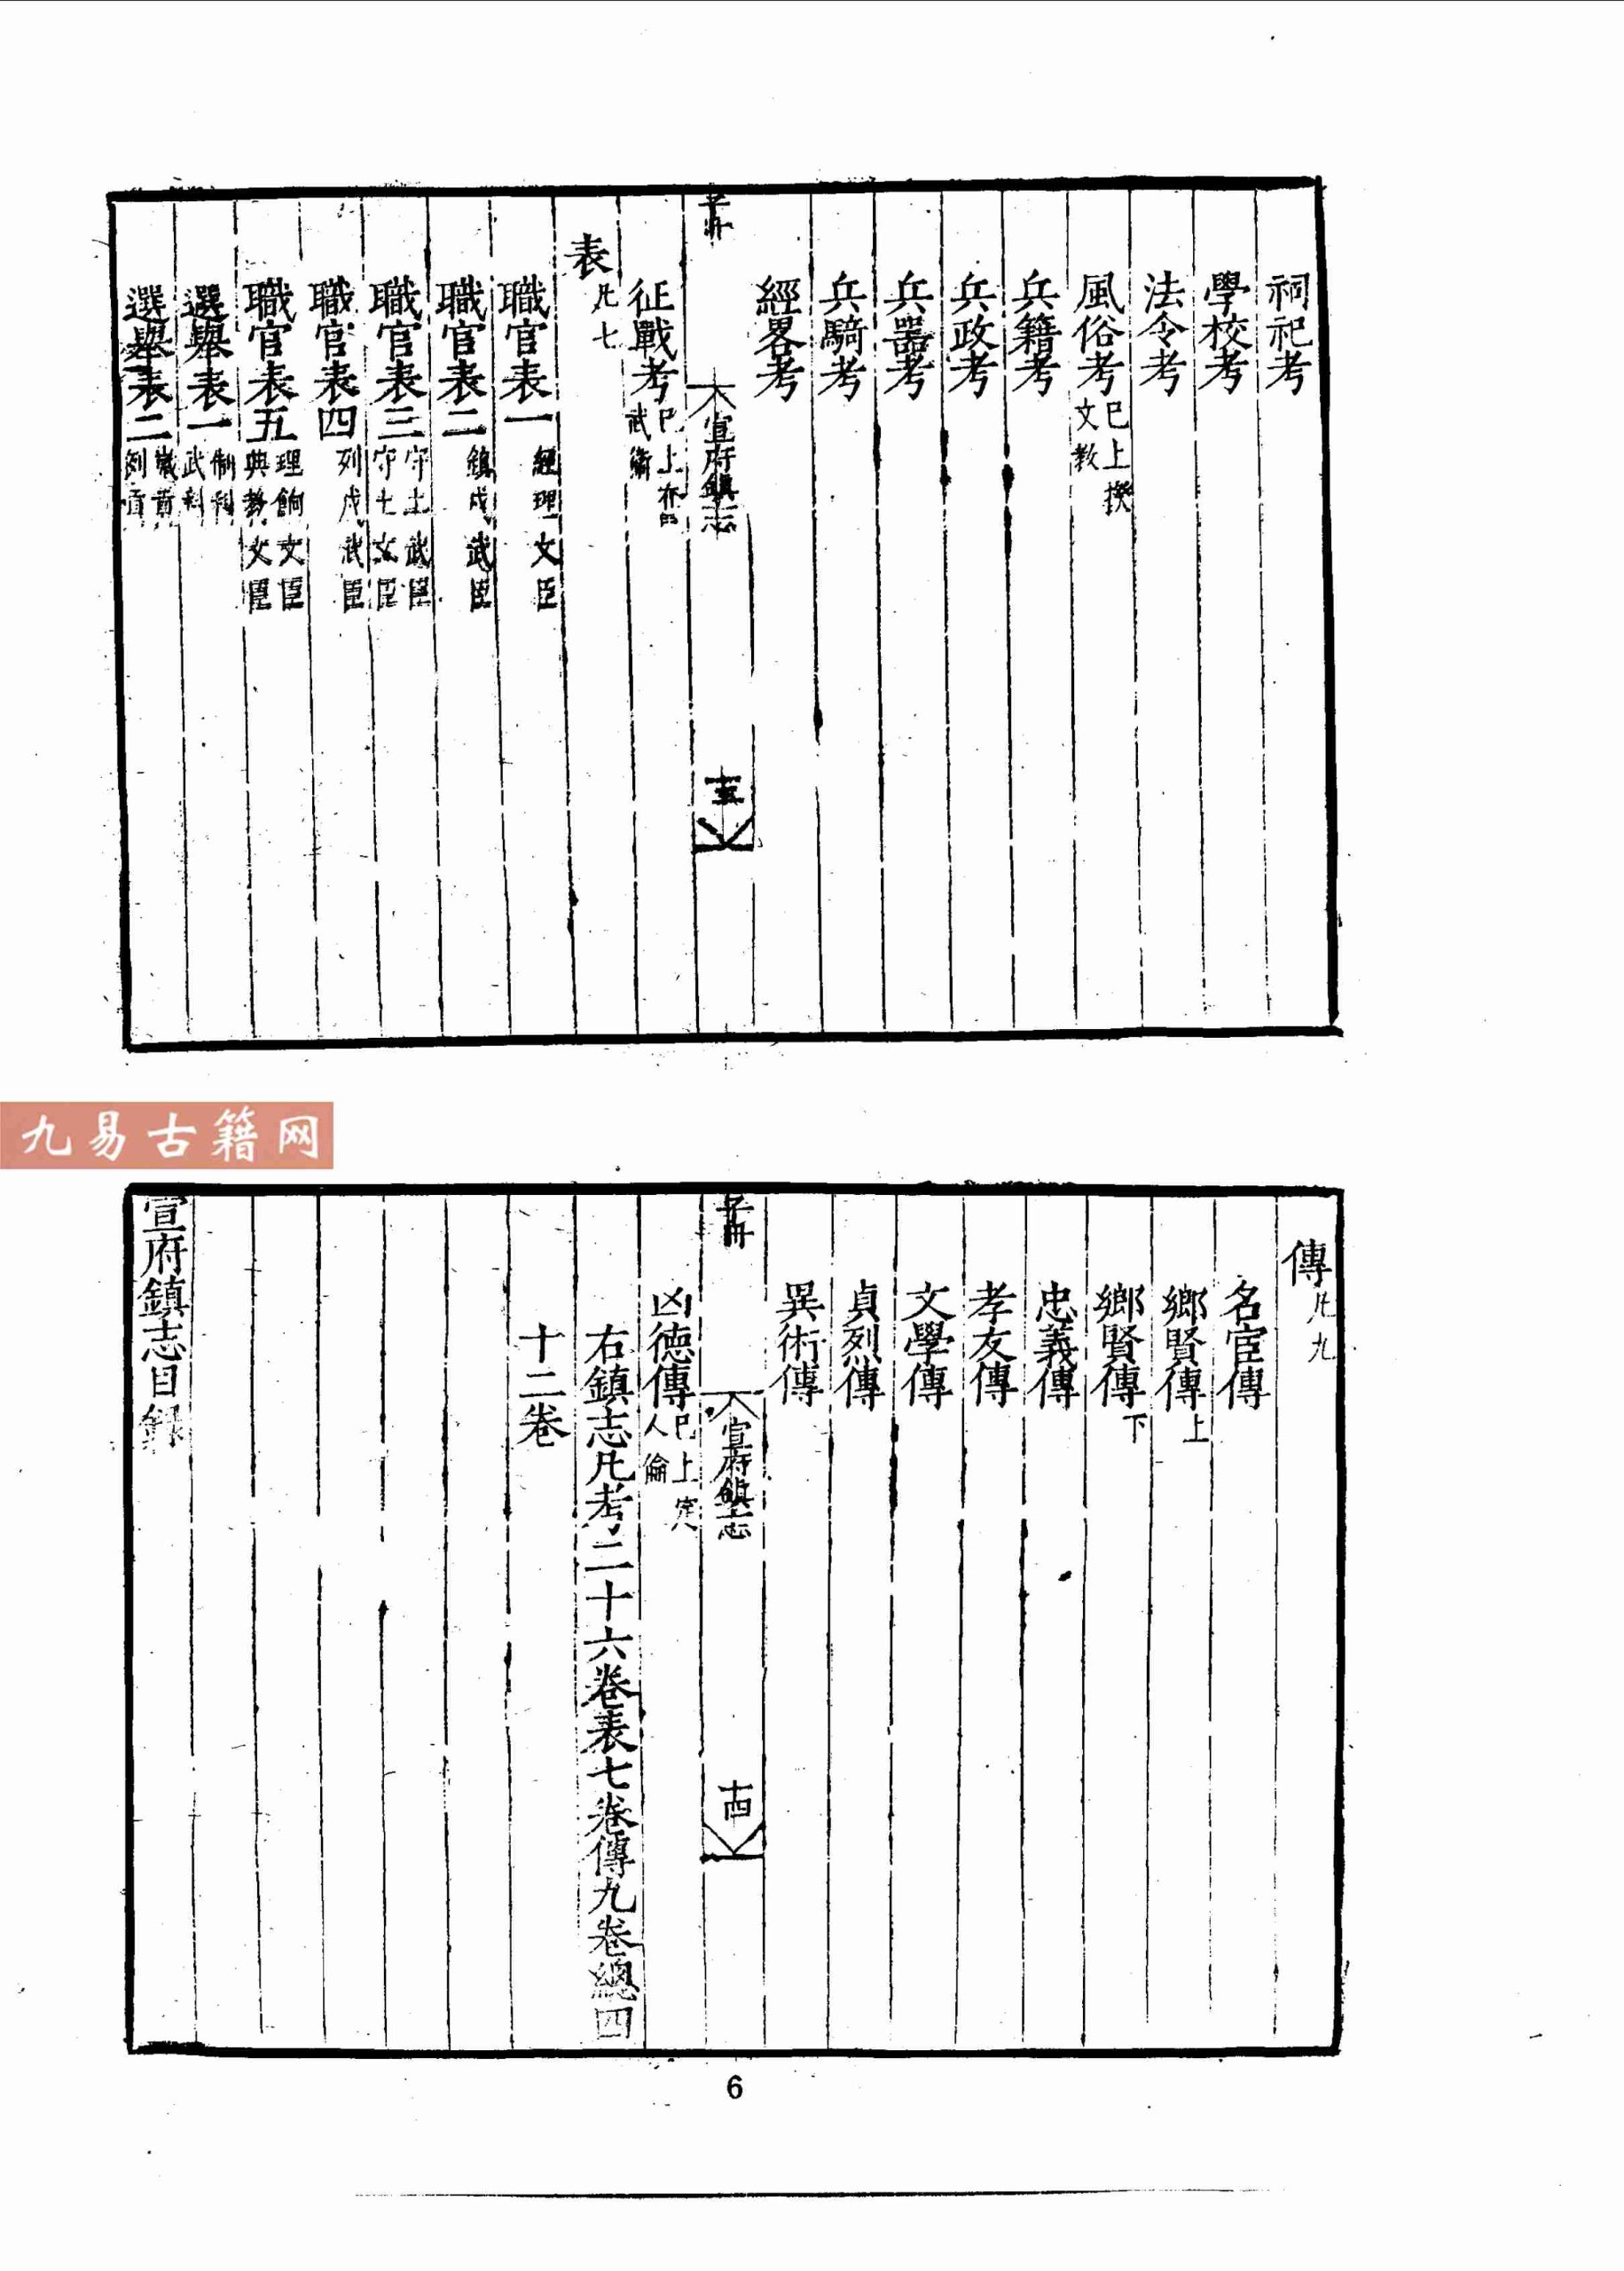 祠祀考
學校考
法令考
風俗考 已上揆文教
兵籍考
兵政考
兵器考
兵騎考
經畧考
宣府鎮志
征戰考 已上奮武衛
表 凡七
職官表一 經理文臣
職官表二 鎮戍武臣
職官表三 守土武臣 守土文臣
職官表四 列戍武臣
職官表五 理餉文臣 典教文臣
選舉表一 制科 武科
選舉表二 歲貢 例貢
九易古籍网
傳 凡九
名宦傳
鄉賢傳上
鄉賢傳下
忠義傳
孝友傳
文學傳
貞烈傳
異術傳
宣府鎮志
十四
凶德傳 已上定人倫
右鎮志凡考二十六卷表七卷傳九卷總四
十二卷
宣府鎮志目錄
6